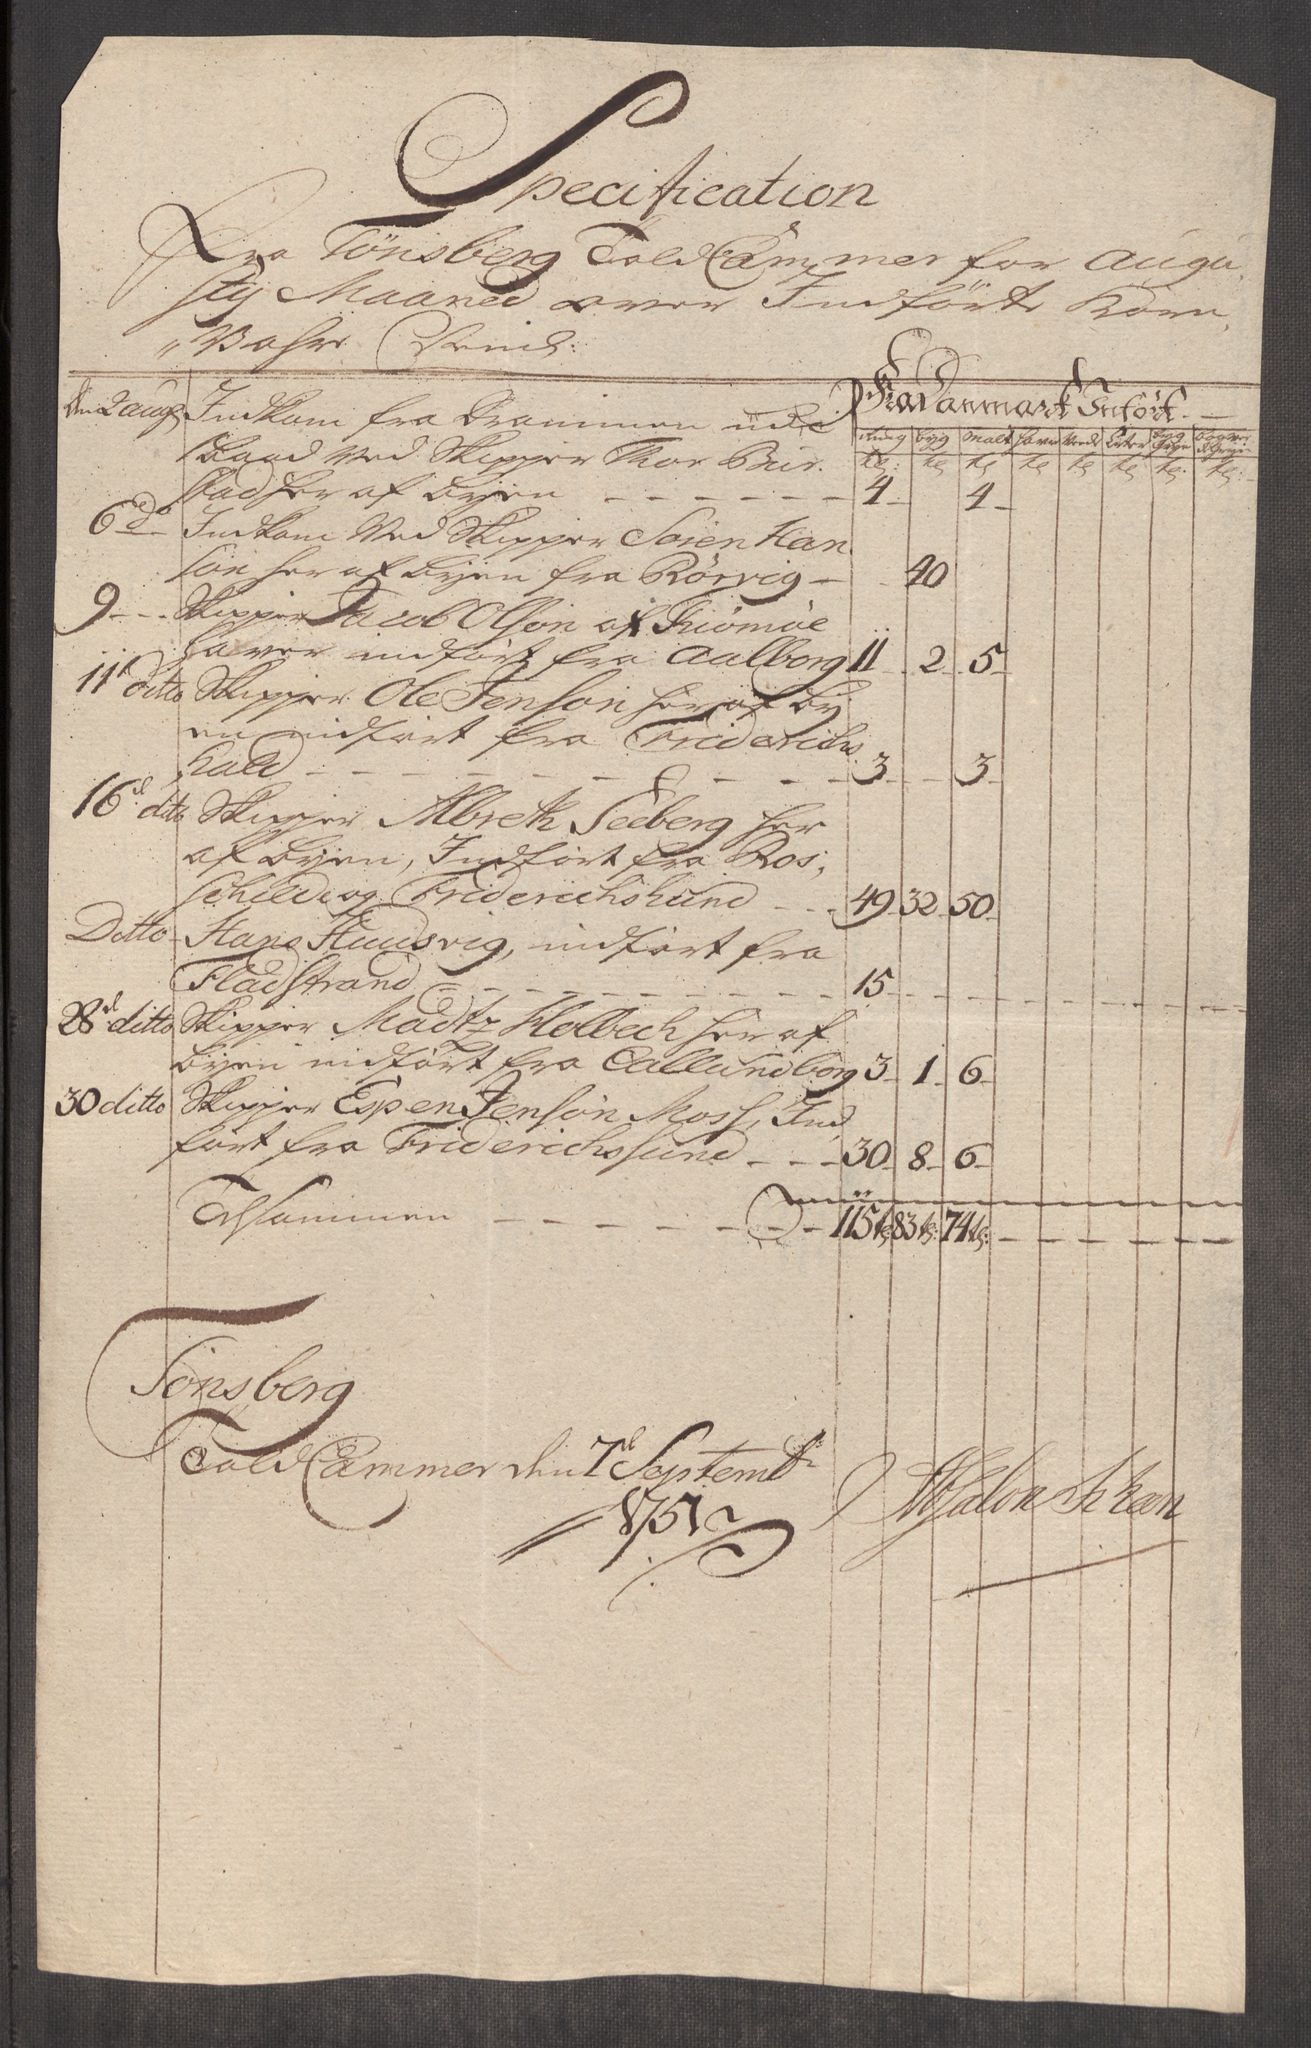 Specification
Fra Tönsberg Told Cammer for Augu,
stij Maaned over Indförte Korn,
Vahre
Fra Danmark Inført.
Rug byg Malt Havre Erter byg Gryn
te: te te te te te te: te:
den 2 aug Indkom fra Drammen
Baad Ved Skipper Thor Bur,
stad her af byen - - - - - - 4 - 4 -
6 do Indkom Ved Skipper Sören Han
sön her af byen fra Rörvig - - 40
9 - - Skipper Jacob Olson af Tiömöe
haver indfört fra Aalborg 11 - 2 - 5 -
11t ditto Skipper Ole Jenson her af by
en indfört fra Friderichs
hald - - - - - - - - 3 - - 3 -
16d dito Skipper Albreth Seeberg her
af byen, Indfört fra Ros,
schild og Friderichshund - - - 49 - 32 - 50 -
Ditto - Hans Huusvig, indfört fra
Fladstrand - - - - - - - - - 15 - - - - - - - -
28d ditto Skipper Madtz Holbech her af
byen indfört fra Callundborg 3 - 1 - 6 -
30 ditto Skipper Espen Jensön Moss, Ind,
fört fra Friderichssund - - - 30 - 8 - 6 -
Tilsammen - - - - - - - 115 te 83 te: 74 te: - - - - - -
Tönsberg
Told Cammer den 7d Septembr:
1751